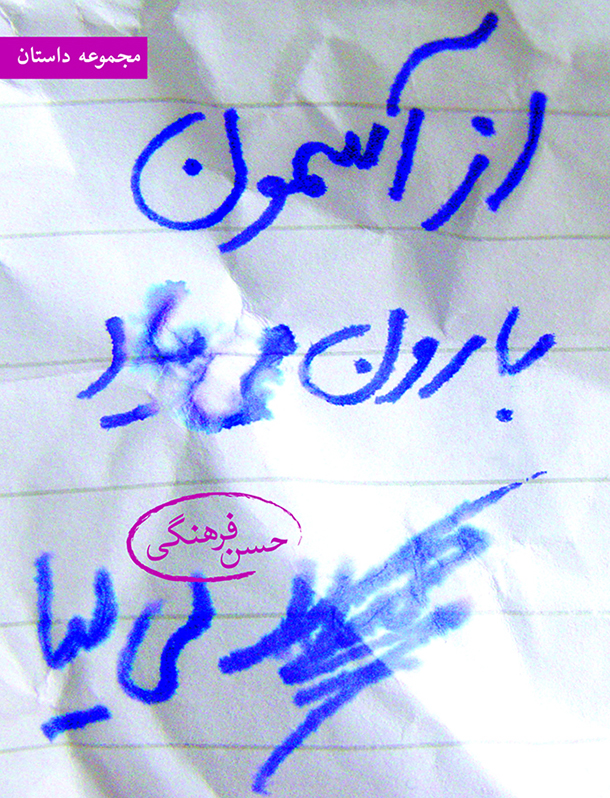 مجموعه داستان
از آسمون
بارون می یاد
حسن فرهنگی